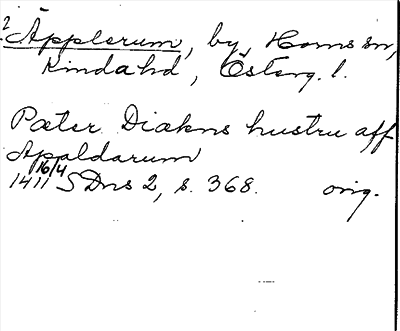 2 Äpplerum, by, Horns sn,
Kinda hd, Österg. l.
Pæter Diækns hustru aff
Apaldarum
1411 16/4 SDns 2, s. 368. orig.